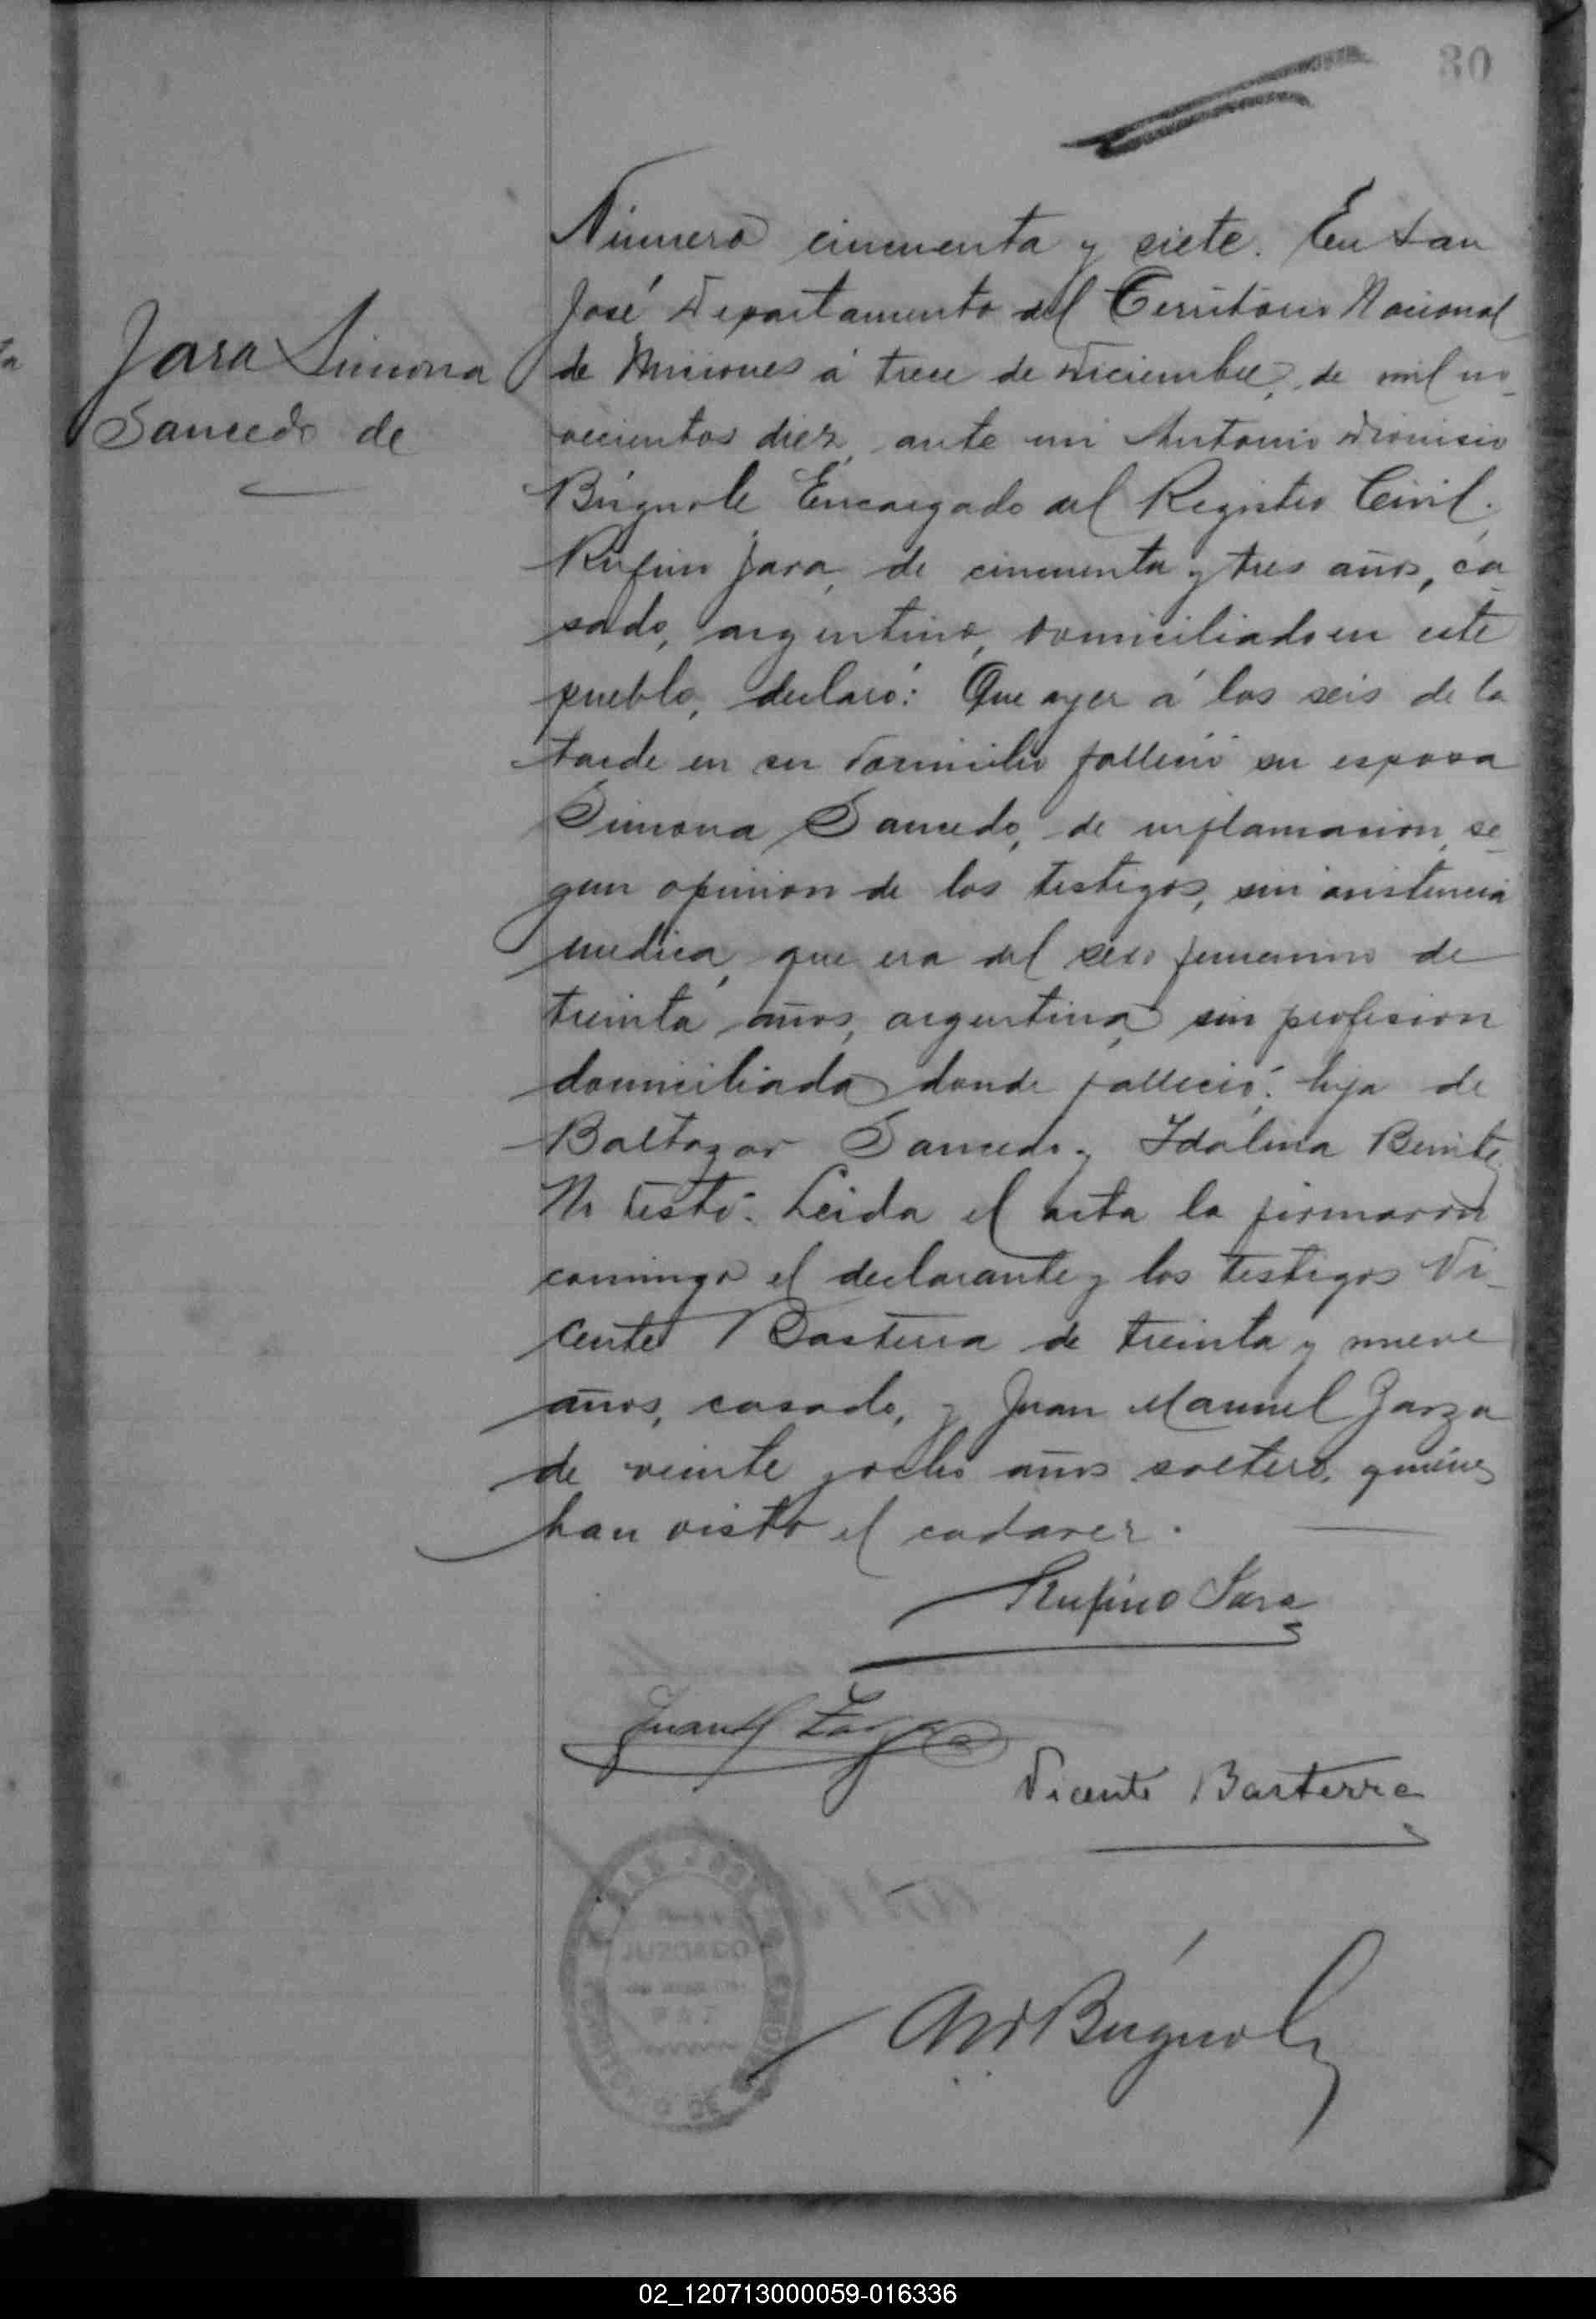 30
Jara Simona
Saucedo de
Número cincuenta y siete. En San
José Departamento del Territorio Nacional
de Misiones á trece de Diciembre, de mil no-
vecientos diez, ante mi Antonio Dionisio
Búgnole Encargado del Registro Civil.
Rufino Jara, de cincuenta y tres años, ca-
sado, argentino, domiciliado en este
pueblo, declaró: Que ayer á las seis de la
tarde en su domicilio falleció su esposa
Simona Saucedo, de inflamacion, se-
gun opinion de los testigos, sin asistencia
medica, que era del sexo femenino de
treinta años, argentina, sin profesion
domiciliada donde falleció: hija de
Baltazar Saucedo y Idalina Benitez
No testó. Leida el acta la firmaron
conmigo el declarante y los testigos Vi-
cente Basterra de treinta y nueve
años, casado, y Juan Manuel Zarza
de veinte y ocho años soltero, quienes
han visto el cadaver.
Rufino Jara
Juan M Zarza
Vicente Basterra
JUZGADO
DE PAZ
TERRITORIO DE
AD Búgnole
02_120713000059-016336